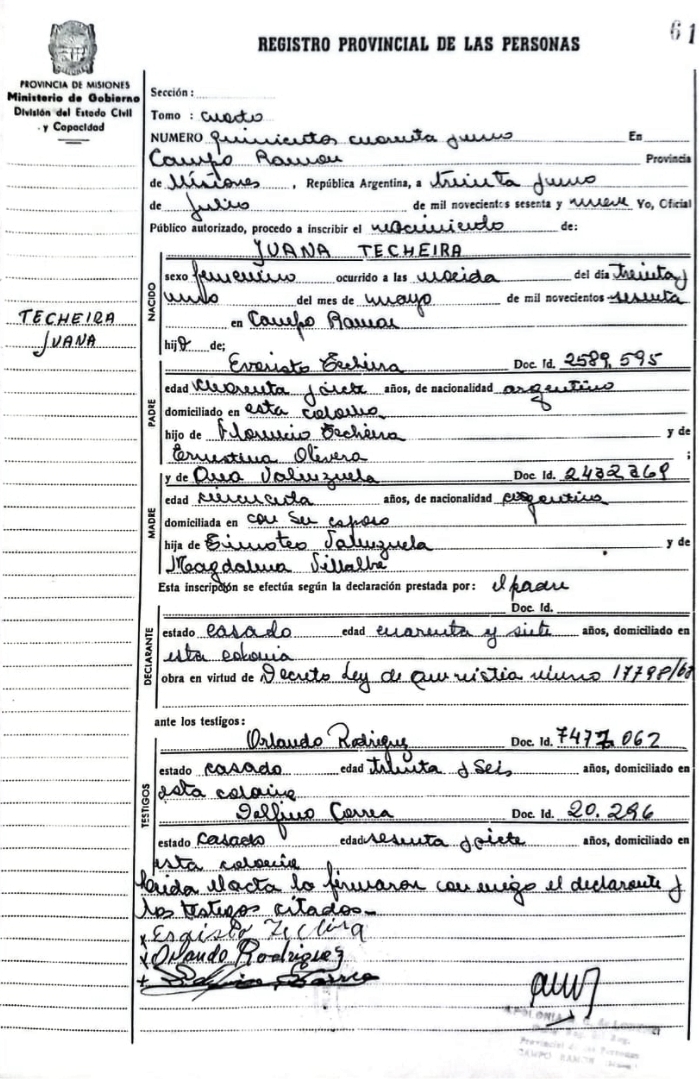 61
REGISTRO PROVINCIAL DE LAS PERSONAS
PROVINCIA DE MISIONES
Ministerio de Gobierno
División del Estado Civil
y Capacidad
TECHEIRA
JUANA
Sección:
Tomo: cuarto
NUMERO quinientos cuarenta y uno En
Campo Ramon Provincia
de Misiones, República Argentina, a treinta y uno
de Julio de mil novecientos sesenta y nueve Yo, Oficial
Público autorizado, procedo a inscribir el nacimiento de:
JUANA TECHEIRA
NACIDO
sexo femenino ocurrido a las nacida del día treinta y
uno del mes de mayo de mil novecientos sesenta
en Campo Ramon
hija de;
PADRE
Evaristo Techeira Doc. Id. 2589,595
edad cuarenta y siete años, de nacionalidad argentino
domiciliado en esta colonia
hijo de Florencio Techeira y de
Ernestina Olivera ;
y de Ana Valenzuela Doc. Id. 2432369
MADRE
edad cincuenta años, de nacionalidad argentina
domiciliada en con su esposo
hija de Timoteo Valenzuela y de
Magdalena Villalba
Esta inscripción se efectúa según la declaración prestada por: el padre
Doc. Id.
DECLARANTE
estado casado edad cuarenta y siete años, domiciliado en
esta colonia
obra en virtud de Decreto Ley de amnistia numero 17798/68
ante los testigos:
TESTIGOS
Orlando Rodriguez Doc. Id. 7477,062
estado casado edad treinta y seis años, domiciliado en
esta colonia
Delfino Correa Doc. Id. 20.296
estado casado edad sesenta y siete años, domiciliado en
esta colonia
leida el acta la firmaron conmigo el declarante y
los testigos citados
x Techeira
x Orlando Rodriguez
x
CAMPO RAMON